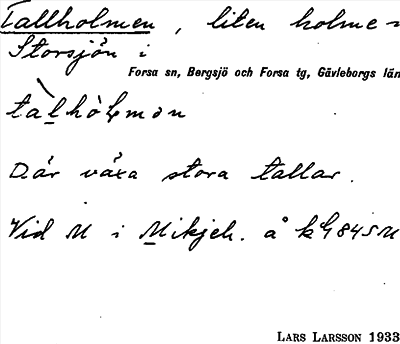 Tallholmen, liten holme i
Storsjön i
Forsa sn, Bergsjö och Forsa tg, Gävleborgs län
Där växa stora tallar.
Vid M i Mikjeh. å
LARS LARSSON 1933